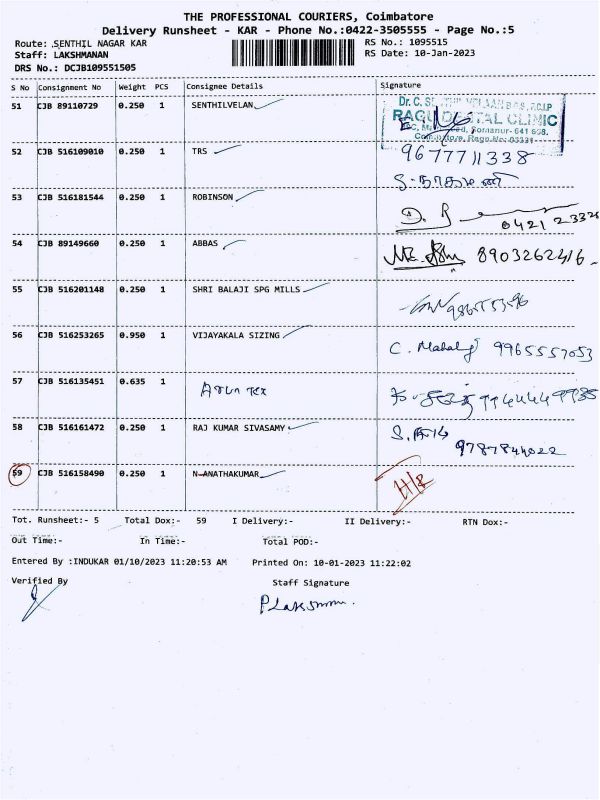 THE PROFESSIONAL COURIERS, Coimbatore
Delivery Runsheet - KAR - Phone No.:0422-3505555 - Page No.:5
Route: SENTHIL NAGAR KAR
RS No.: 1095515
Staff: LAKSHMANAN
RS Date: 10-Jan-2023
DRS No.: DCJB109551505
S No Consignment No Weight PCS Consignee Details Signature
51 CJB 89110729 0.250 1 SENTHILVELAN
52 CJB 516109010 0.250 1 TRS 9677711338
53 CJB 516181544 0.250 1 ROBINSON
54 CJB 89149660 0.250 1 ABBAS 8903262416
55 CJB 516201148 0.250 1 SHRI BALAJI SPG MILLS
56 CJB 516253265 0.950 1 VIJAYAKALA SIZING 9965557053
57 CJB 516135451 0.635 1 Arun Tex
58 CJB 516161472 0.250 1 RAJ KUMAR SIVASAMY
59 CJB 516158490 0.250 1 N ANATHAKUMAR
Tot. Runsheet:- 5 Total Dox:- 59 I Delivery:- II Delivery:- RTN Dox:-
Out Time:- In Time:- Total POD:-
Entered By :INDUKAR 01/10/2023 11:20:53 AM Printed On: 10-01-2023 11:22:02
Verified By Staff Signature